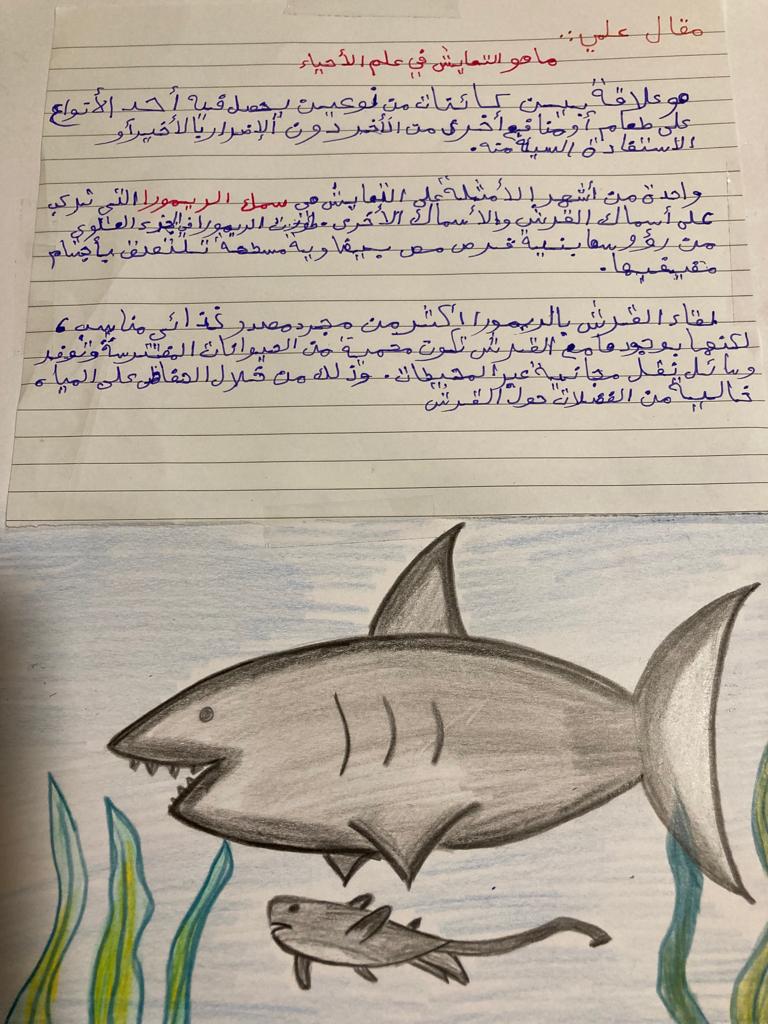 مقال علمي :.
ما هو التعايش في علم الأحياء
هو علاقة بين كائنات من نوعين يحصل فيه أحد الأنواع
على طعام أو منافع أخرى من الأخر دون الإضرار بالأخير أو
الاستفادة السيئة منه.
واحدة من أشهر الأمثلة على التعايش هي سمك الريمورا التي تركب
على أسماك القرش والأسماك الأخرى. الريمورا في الجزء العلوي
من رؤوسها بنية قرص مص بيضاوية مسطحة تلتصق بأجسام
مضيفيها.
لقاء القرش بالريمورا أكثر من مجرد مصدر غذائي مناسب ،
لكنها بوجودها مع القرش تكون محمية من الحيوانات المفترسة وتوفر
وسائل نقل مجانية عبر المحيطات. وذلك من خلال الحفاظ على المياه
خالية من الفضلات حول القرش